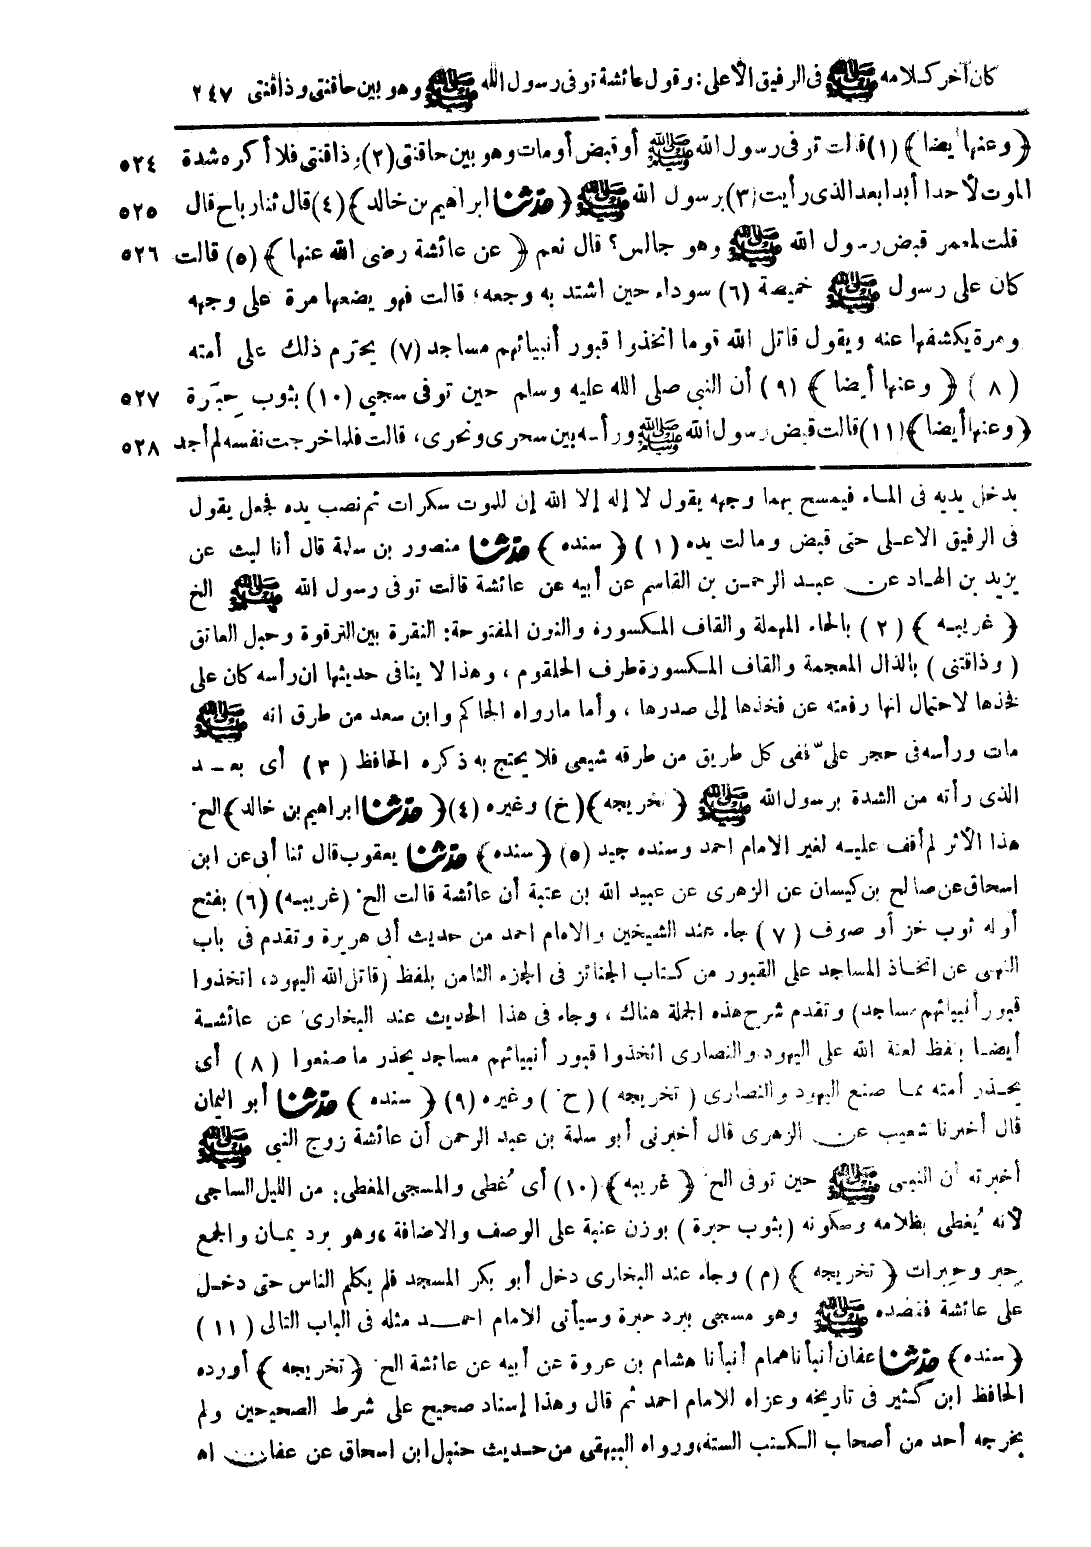 كان آخر كلامه ﷺ فى الرفيق الأعلى: وقول عائشة توفى رسول الله ﷺ وهو بين حاقنتى وذاقنتى ٢٤٧
﴿ وعنها أيضا ﴾ (١) قالت توفى رسول الله ﷺ أو قبض أو مات وهو بين حاقنتى (٢) وذاقنتى فلا أكره شدة ٥٢٤
الموت لأحد أبدا بعد الذى رأيت (٣) برسول الله ﷺ ﴿ حدثنا ابراهيم بن خالد ﴾ (٤) قال ثنا رباح قال ٥٢٥
قلت لمعمر قبض رسول الله ﷺ وهو جالس؟ قال نعم ﴿ عن عائشة رضى الله عنها ﴾ (٥) قالت ٥٢٦
كان على رسول ﷺ خميصة (٦) سوداء حين اشتد به وجعه؛ قالت فهو يضعها مرة على وجهه
ومرة يكشفها عنه ويقول قاتل الله قوما اتخذوا قبور أنبيائهم مساجد (٧) يحترم ذلك على أمته
(٨) ﴿ وعنها أيضا ﴾ (٩) أن النبى صلى الله عليه وسلم حين توفى سجى (١٠) بثوب حِبَرة ٥٢٧
﴿ وعنها أيضا ﴾ (١١) قالت قبض رسول الله ﷺ ورأسه بين سحرى ونحرى، قالت فلما خرجت نفسه لم أجد ٥٢٨
يدخل يديه فى الماء فيمسح بهما وجهه يقول لا إله إلا الله إن للموت سكرات ثم نصب يده فجعل يقول
فى الرفيق الاعلى حتى قبض ومالت يده (١) ﴿ سنده ﴾ حدثنا منصور بن سلمة قال أنا ليث عن
يزيد بن الهاد عن عبد الرحمن بن القاسم عن أبيه عن عائشة قالت توفى رسول الله ﷺ الخ
﴿ غريبه ﴾ (٢) بالحاء المهملة والقاف المكسورة والنون المفتوحة: النقرة بين الترقوة وحبل العاتق
( وذاقنتى ) بالذال المعجمة والقاف المكسورة طرف الحلقوم، وهذا لا ينافى حديثها ان رأسه كان على
فخذها لاحتمال انها رفعته عن فخذها إلى صدرها، وأما مارواه الحاكم وابن سعد من طرق انه ﷺ
مات ورأسه فى حجر علىّ ففى كل طريق من طرقه شيعى فلا يحتج به ذكره الحافظ (٣) أى بعد
الذى رأته من الشدة برسول الله ﷺ ﴿ تخريجه ﴾ (خ) وغيره (٤) ﴿ حدثنا ابراهيم بن خالد ﴾ الخ
هذا الأثر لم أقف عليه لغير الامام احمد وسنده جيد (٥) ﴿ سنده ﴾ حدثنا يعقوب قال ثنا أبى عن ابن
اسحاق عن صالح بن كيسان عن الزهرى عن عبيد الله بن عتبة أن عائشة قالت الخ (غريبه) (٦) بفتح
أوله ثوب خز أو صوف (٧) جاء عند الشيخين والامام احمد من حديث أبى هريرة وتقدم فى باب
النهى عن اتخاذ المساجد على القبور من كتاب الجنائز فى الجزء الثامن بلفظ (قاتل الله اليهود، اتخذوا
قبور أنبيائهم مساجد) وتقدم شرح هذه الجملة هناك، وجاء فى هذا الحديث عند البخارى عن عائشة
أيضا بلفظ لعنة الله على اليهود والنصارى اتخذوا قبور أنبيائهم مساجد يحذر ما صنعوا (٨) أى
يحذر أمته مما صنع اليهود والنصارى (تخريجه) (خ) وغيره (٩) ﴿ سنده ﴾ حدثنا أبو اليمان
قال أخبرنا شعيب عن الزهرى قال أخبرنى أبو سلمة بن عبد الرحمن أن عائشة زوج النبى ﷺ
أخبرته أن النبى ﷺ حين توفى الخ ﴿ غريبه ﴾ (١٠) أى غُطى والمسجى المغطى: من الليل الساجى
لانه يُغطى بظلامه وسكونه (بثوب حبرة) بوزن عنبة على الوصف والاضافة، وهو برد يمان والجمع
حِبر وحِبرات ﴿ تخريجه ﴾ (م) وجاء عند البخارى دخل أبو بكر المسجد فلم يكلم الناس حتى دخل
على عائشة فقصده ﷺ وهو مسجى ببرد حبرة وسيأتى الامام احمد مثله فى الباب التالى (١١)
﴿ سنده ﴾ حدثنا عفان أنبأنا همام أنبأنا هشام بن عروة عن أبيه عن عائشة الخ ﴿ تخريجه ﴾ أورده
الحافظ ابن كثير فى تاريخه وعزاه الامام احمد ثم قال وهذا إسناد صحيح على شرط الصحيحين ولم
يخرجه أحد من أصحاب الكتب الستة، ورواه البيهقى من حديث حنبل ابن اسحاق عن عفان اه